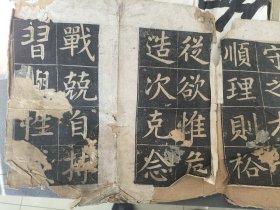 守之
順理則裕
從欲惟危
造次克念
戰兢自持
習與性